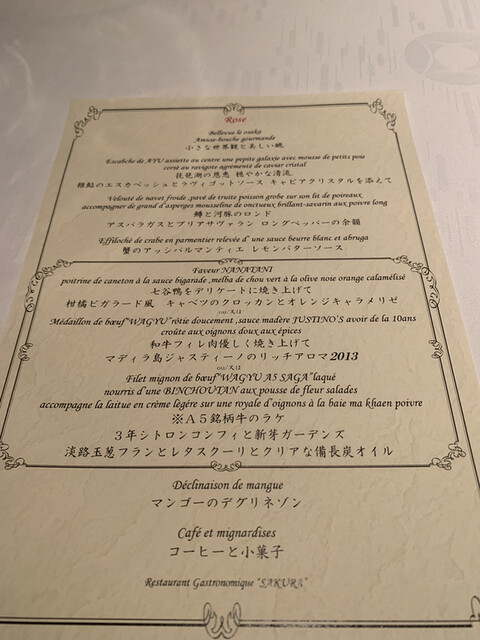 Rose
Bellevue le osaka
Amuse-bouche gourmande
小さな世界観と美しい眺
Escabèche de AYU assiette au centre une pepite galaxie avec mousse de petits pois
corsé au ravigote agrémenté de caviar cristal
琵琶湖の恩恵 穏やかな清流
稚鮎のエスカベッシュとラヴィゴットソース キャビアクリスタルを添えて
Velouté de navet froide, pavé de truite poisson globe sur son lit de poireaux
accompagner de grand d'asperges mousseline de onctueux brillant-savarin aux poivre long
鱒と河豚のロンド
アスパラガスとブリアサヴァラン ロングペッパーの余韻
Effiloché de crabe en parmentier relevée d' une sauce beurre blanc et abruga
蟹のアッシパルマンティエ レモンバターソース
Faveur NANATANI
poitrine de caneton à la sauce bigarade ,melba de chou vert à la olive noie orange calamélisé
七谷鴨をデリケートに焼き上げて
柑橘ビガラード風 キャベツのクロッカンとオレンジキャラメリゼ
ou/又は
Médaillon de bœuf"WAGYU"rôtie doucement ,sauce madère JUSTINO'S avoir de la 10ans
croûte aux oignons doux aux épices
和牛フィレ肉優しく焼き上げて
マディラ島ジャスティーノのリッチアロマ2013
ou/又は
Filet mignon de bœuf"WAGYU A5 SAGA"laqué
nourris d'une BINCHOUTAN aux pousse de fleur salades
accompagne la laitue en crème légére sur une royale d'oignons à la baie ma khaen poivre
※A5銘柄牛のラケ
3年シトロンコンフィと新芽ガーデンズ
淡路玉葱フランとレタスクーリとクリアな備長炭オイル
Déclinaison de mangue
マンゴーのデグリネゾン
Café et mignardises
コーヒーと小菓子
Restaurant Gastronomique "SAKURA"